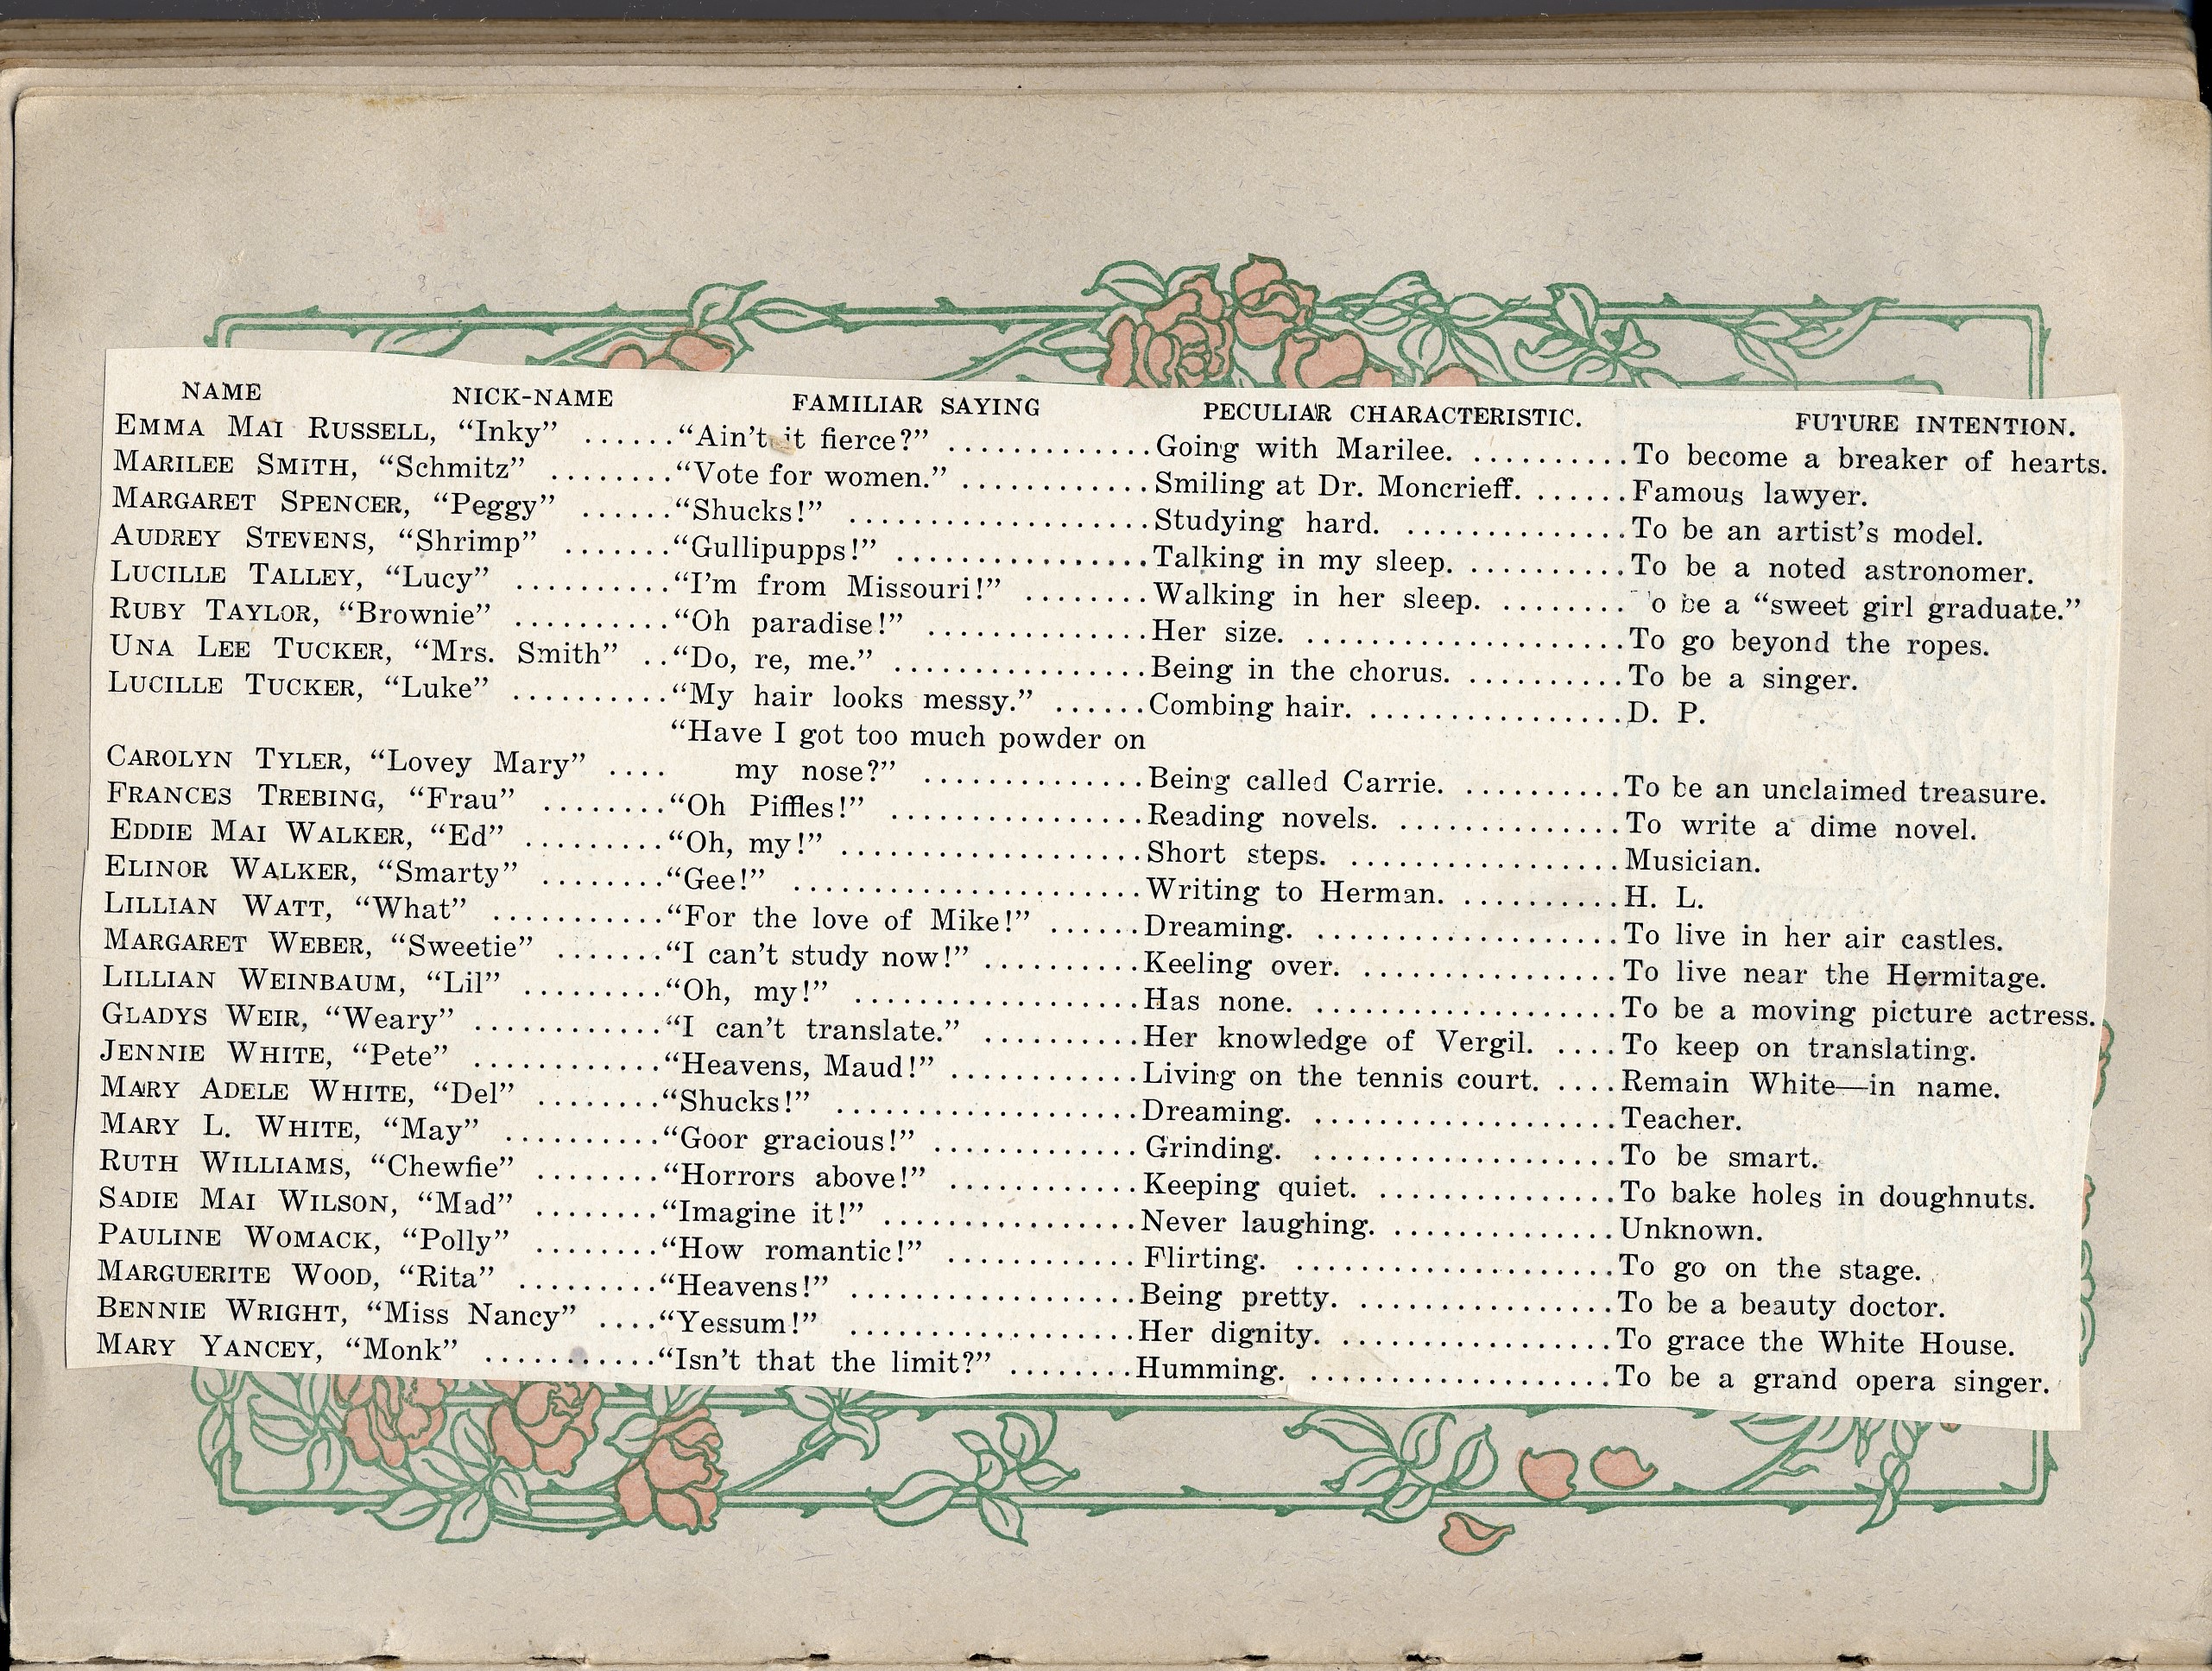 NAME NICK-NAME FAMILIAR SAYING PECULIAR CHARACTERISTIC. FUTURE INTENTION.
EMMA MAI RUSSELL, “Inky” ......“Ain't it fierce?” .............Going with Marilee. ..........To become a breaker of hearts.
MARILEE SMITH, “Schmitz” ........“Vote for women.” ............Smiling at Dr. Moncrieff. ......Famous lawyer.
MARGARET SPENCER, “Peggy” ......“Shucks!” ...................Studying hard. ..............To be an artist's model.
AUDREY STEVENS, “Shrimp” .......“Gullipupps!” ................Talking in my sleep. ..........To be a noted astronomer.
LUCILLE TALLEY, “Lucy” ..........“I'm from Missouri!” ........Walking in her sleep. ........ o be a “sweet girl graduate.”
RUBY TAYLOR, “Brownie” ..........“Oh paradise!” ..............Her size. ....................To go beyond the ropes.
UNA LEE TUCKER, “Mrs. Smith” ..“Do, re, me.” ................Being in the chorus. ..........To be a singer.
LUCILLE TUCKER, “Luke” ..........“My hair looks messy.” ......Combing hair. ................D. P.
“Have I got too much powder on
CAROLYN TYLER, “Lovey Mary” .... my nose?” ..............Being called Carrie. ..........To be an unclaimed treasure.
FRANCES TREBING, “Frau” ........“Oh Piffles!” ................Reading novels. ..............To write a dime novel.
EDDIE MAI WALKER, “Ed” .........“Oh, my!” ...................Short steps. .................Musician.
ELINOR WALKER, “Smarty” ........“Gee!” ......................Writing to Herman. ..........H. L.
LILLIAN WATT, “What” ...........“For the love of Mike!” ......Dreaming. ...................To live in her air castles.
MARGARET WEBER, “Sweetie” .......“I can't study now!” ..........Keeling over. ................To live near the Hermitage.
LILLIAN WEINBAUM, “Lil” .........“Oh, my!” ..................Has none. ...................To be a moving picture actress.
GLADYS WEIR, “Weary” ............“I can't translate.” ..........Her knowledge of Vergil. ....To keep on translating.
JENNIE WHITE, “Pete” ............“Heavens, Maud!” ............Living on the tennis court. ....Remain White—in name.
MARY ADELE WHITE, “Del” ........“Shucks!” ...................Dreaming. ...................Teacher.
MARY L. WHITE, “May” ..........“Goor gracious!” .............Grinding. ...................To be smart.
RUTH WILLIAMS, “Chewfie” ........“Horrors above!” ............Keeping quiet. ...............To bake holes in doughnuts.
SADIE MAI WILSON, “Mad” ........“Imagine it!” ................Never laughing. ..............Unknown.
PAULINE WOMACK, “Polly” ........“How romantic!” ............Flirting. ....................To go on the stage.
MARGUERITE WOOD, “Rita” .........“Heavens!” ..................Being pretty. ................To be a beauty doctor.
BENNIE WRIGHT, “Miss Nancy” ....“Yessum!” ..................Her dignity. .................To grace the White House.
MARY YANCEY, “Monk” ...........“Isn't that the limit?” ........Humming. ...................To be a grand opera singer.